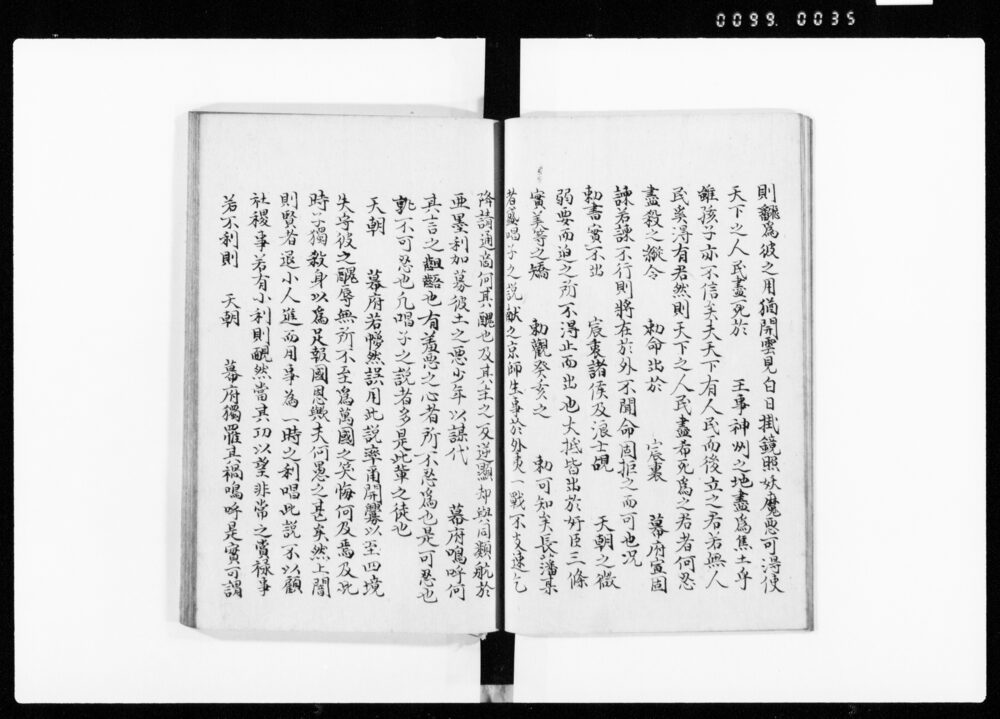 0099. 0035
則飜為彼之用猶開雲見白日掛鏡照妖魔悪可得使
天下之人民盡死於 王事神州之地盡為焦土乎
雖孩子亦不信矣夫天下有人民而後立之君若無人
民奚得有君然則天下之人民盡希死為之君者何忍
盡殺之縦令 勅命出於 宸裏 幕府宣固
諫若諫不行則將在於外不聞命固拒之而可也况
勅書實不出 宸裏諸侯及浪士覘 天朝之微
弱要而迫之所不得止而出也大抵皆出於奸臣三條
實美等之矯 勅觀癸亥之 勅可知矣長藩某
者盛唱 子之説献之京師生事於外夷一戰不支速乞
降請通商何其醜也及其主之反逆顯却與同類航於
亜墨利加募彼土之悪少年以謀代 幕府嗚呼何
其言之齟齬也有羞悪之心者所不忍為也是可忍也
孰不可忍也凡唱 子之説者多是此輩之徒也
天朝 幕府若幡然誤用此説率甬開釁以至四境
失守彼之醜辱無所不至為萬國之笑悔何及焉及此
時 子獨殺身以為足報國恩與夫何愚之甚矣然上闇
則賢者退小人進而用事為一時之利唱此説不以顧
社稷事若有小利則靦然當其功以望非常之賞禄事
若不利則 天朝 幕府獨罹其禍嗚呼是實可謂